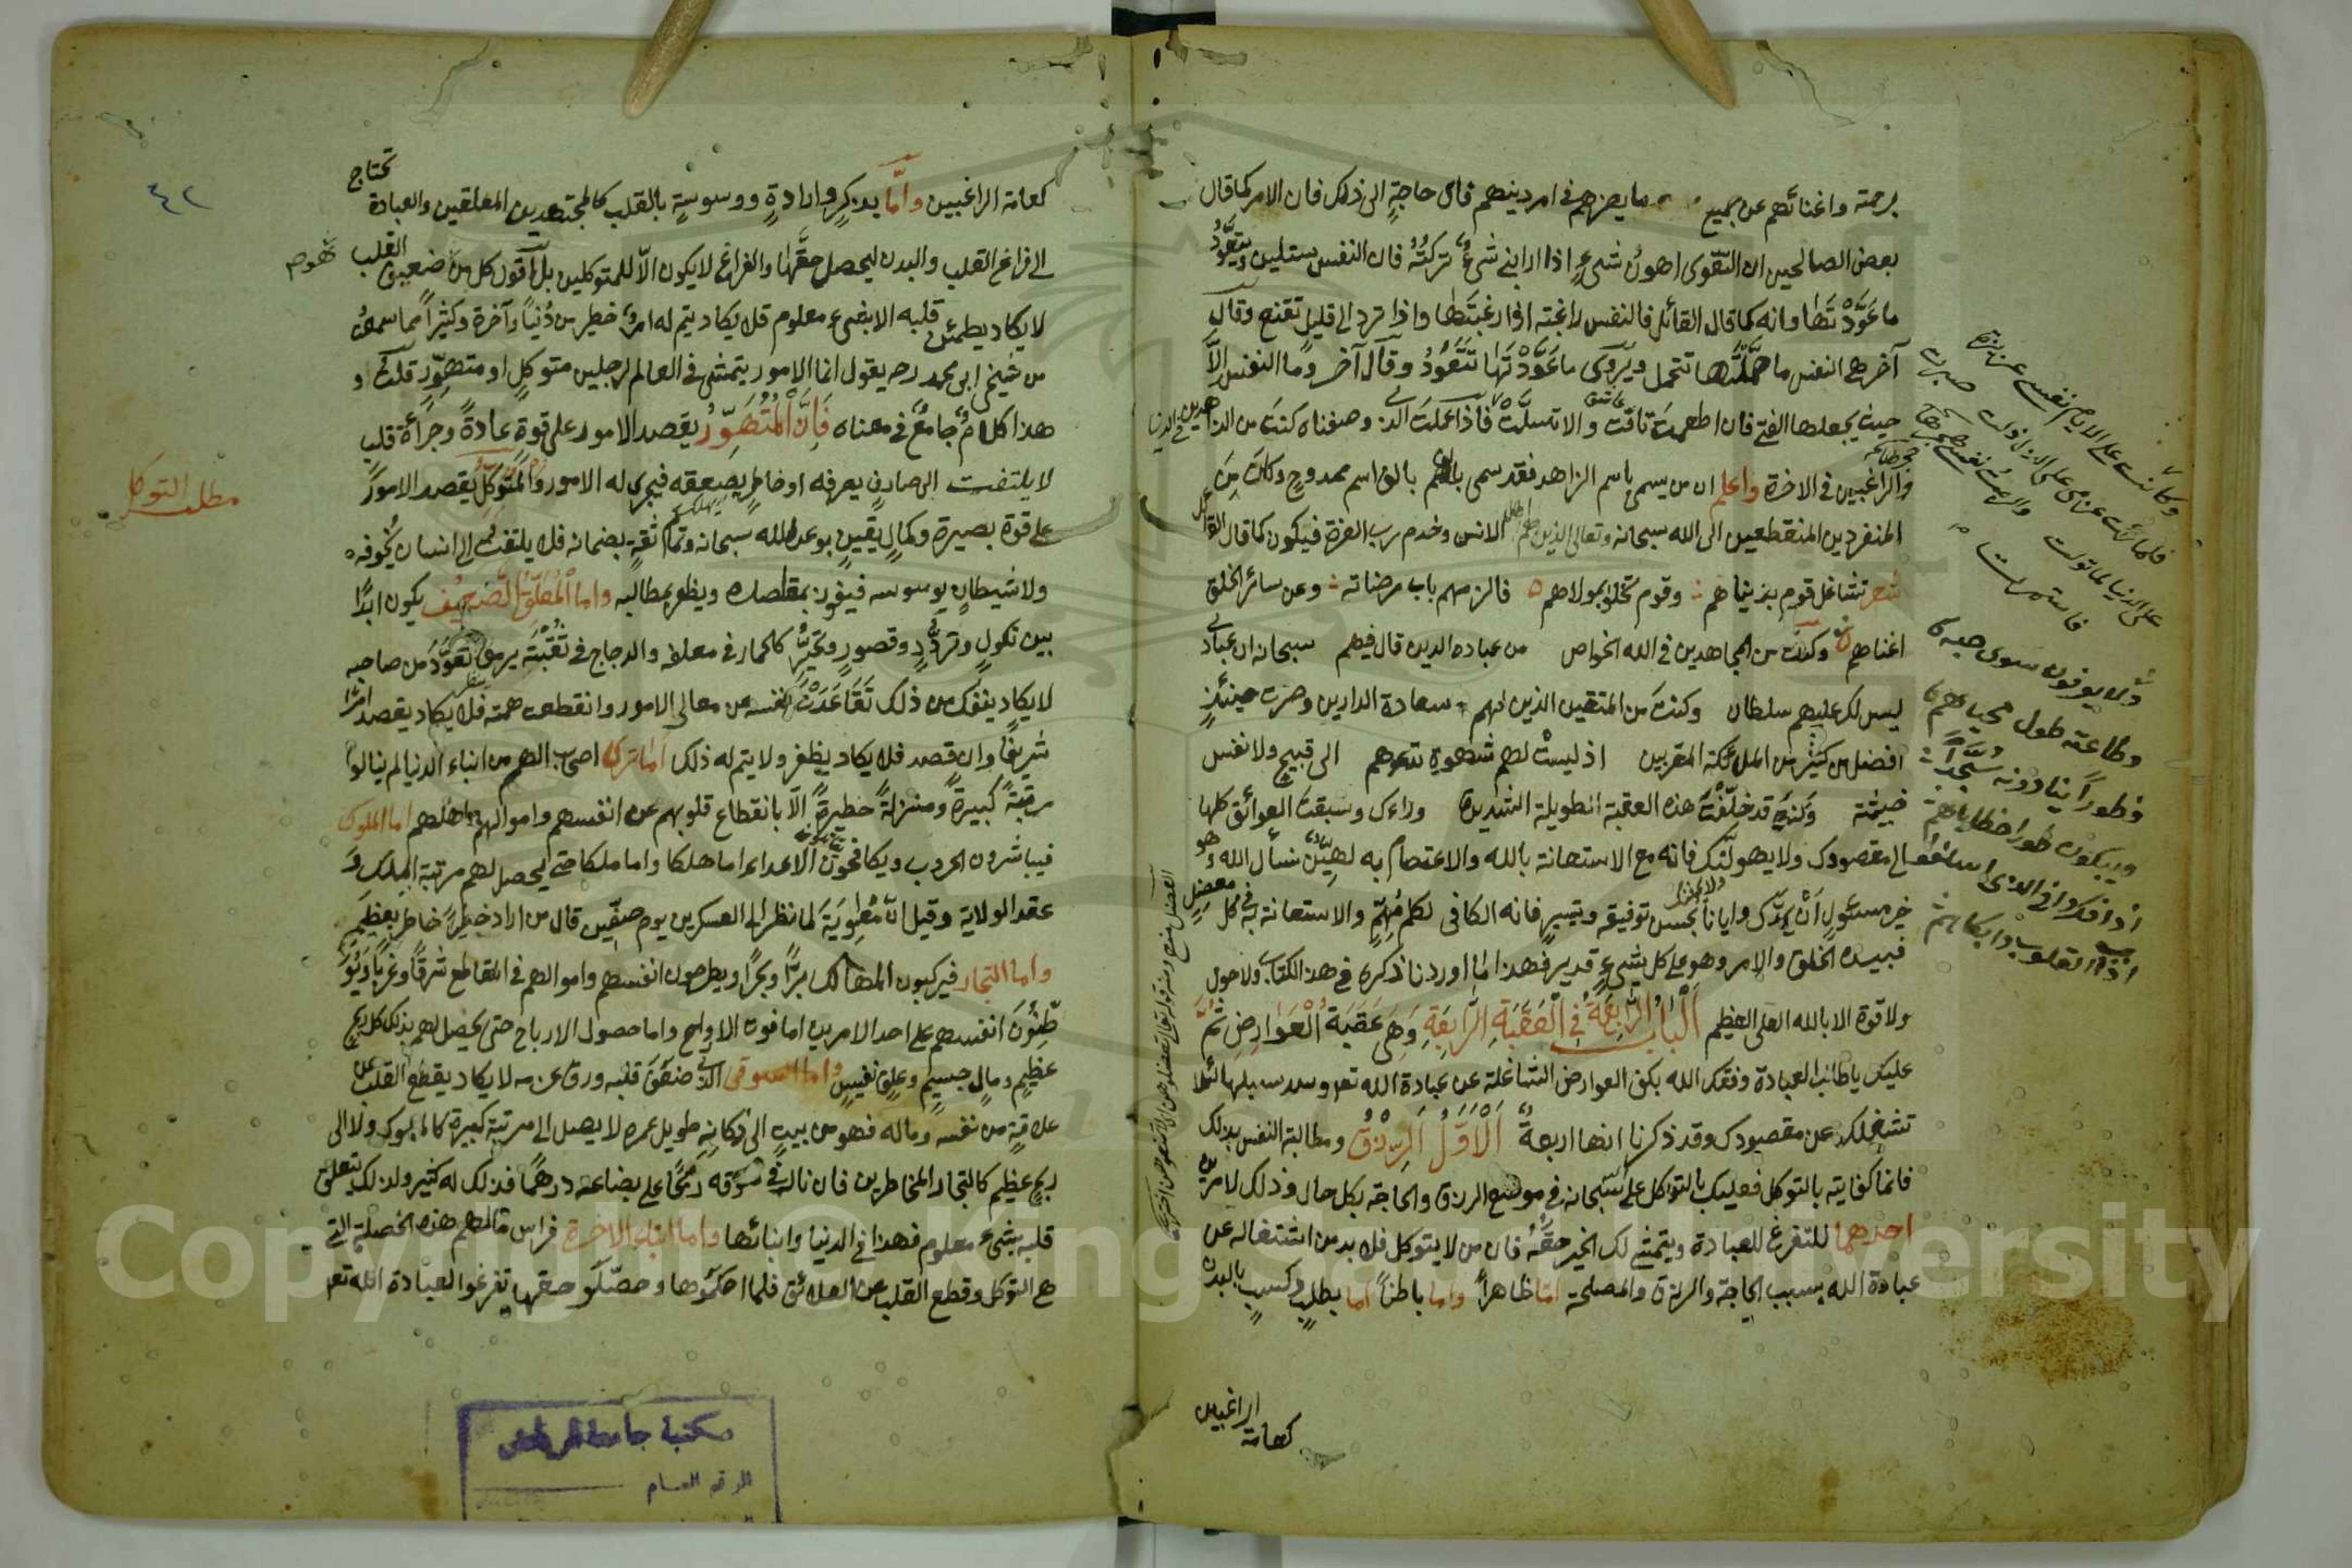 برحمته واغنائهم عن جميع ما يضرهم في امر دينهم فاى حاجةٍ الى ذلك فان الامر كما قال
بعض الصالحين ان التقوى اهونُ شىءٍ اذا رابنى شىءٌ تركتُهُ فان النفس ستلين وتتعوّدُ
ما عَوَّدْتَها وانه كما قال القائل فالنفس راغبته اذا رغبتَها واذا ترد الى قليل تقنع وقال
آخر هى النفس ما حَمَّلْتَها تتحمل ويُروى ما عَوَّدْتَها تتعوّدُ وقال آخر وما النفس الّا
حيث يجعلها الفتى فان اطعمت تاقت والا تسلّت فاذا عملت الذى وصفناه كنت من الزاهدين فى الدنيا
والراغبين فى الاخرة واعلم ان من يسمى باسم الزاهد فقد سمى بالف اسم ممدوح وكنت مِن
المنفردين المنقطعين الى الله سبحانه وتعالى الذين هم اهل الانس وخدم رب العزة فيكون كما قال القائل
شعر تشاغل قوم بدنياهم وقوم تخلوا بمولاهم فالزمهم باب مرضاته وعن سائر الخلق
اغناهم وكنت من المجاهدين فى الله الخواص من عباده الذين قال فيهم سبحانه ان عبادى
ليس لك عليهم سلطان وكنتَ من المتقين الذين لهم سعادة الدارين وصرت حينئذٍ
افضل من كثير من الملائكة المقربين اذ ليستْ لهم شهوة تدعوهم الى قبيح ولا نفس
خبيثة وكنت قد خلّفْتَ هذه العقبة الطويلة الشديدة وراءك وسبقت العوائق كلها
الى مقصودك ولا يهولنّك فانه مع الاستعانة بالله والاعتصام به لهيّنٌ نسأل الله وهو
خير مسئول أن يمدّك وايانا بحسن توفيقه وتيسيره فانه الكافى لكل مُهِمٍّ والاستعانة به فى كل معضل
فبيده الخلق والامر وهو على كل شىءٍ قدير فهذا ما اوردنا ذكره فى هذا الكتاب ولا حول
ولا قوة الا بالله العلى العظيم اَلْبابُ الرابعة فِى الْعَقَبَةِ الرَّابِعَةِ وَهِىَ عَقَبَةُ الْعَوَارِضِ ثُمَّ
عليك يا طالب العبادة وفقك الله بكف العوارض الشاغلة عن عبادة الله تعـ وسد سبيلها لئلا
تشغلك عن مقصودك وقد ذكرنا انها اربعةٌ اَلْاَوَّلُ اَلرِّزْقُ ومطالبة النفس بذلك
فانما كفايته بالتوكل فعليك بالتوكل على الله سبحانه فى موضع الرزق والحاجة بكل حال وذلك لامرين
احدهما للتفرغ للعبادة ويتمشى لك الخير حقُّهُ فان من لا يتوكل فلا بد من اشتغاله عن
عبادة الله بسبب الحاجة والرزق والمصلحة امّا ظاهراً واما باطناً اما بطلبٍ وكسبٍ بالبدن
كعامة الراغبين
وكانت على الايام نفسى عزيزة
فلما رأت عزمى على الذل ذلت
ولا يعرفون سوى حبه
وطاعته طول محياهم
فطوراً ينادونه سُجَّداً
ويبكون طوراً خطاياهم
٤٢
كعامة الراغبين وامّا بذكرٍ وارادةٍ ووسوسةٍ بالقلب كالمجتهدين المعلقين والعبادة تحتاج
الى فراغ القلب والبدن ليحصل حقُّها والفراغ لا يكون الّا للمتوكلين بل اقول كل من ضعيف القلب
لا يكاد يطمئن قلبه الا بشىء معلوم فلا يكاد يتم له امر خطير من دُنياً وآخرة وكثيراً مما سمعتُ
من شيخى ابى محمد رحـ يقول انما الامور يتمشى فى العالم لرجلين متوكلٍ او متهوّرٍ قلتُ و
هذا كلامٌ جامعٌ فى معناه فَاِنَّ الْمُتَهَوِّرُ يقصد الامور على قوة عادةٍ وجرأة قلبٍ
لا يلتفت الى صارف يصرفه او خاطر يضعفه فيجرى له الامور والْمُتَوَكِّلُ يقصد الامورَ
على قوة بصيرة وكمال يقينٍ بوعد الله سبحانه وتمام ثقةٍ بضمانه فلا يلتفت الى انسان يُخوفه
ولا شيطانٍ يوسوسه فيفوز بمقاصده ويظفر بمطالبه واما الْمُعَلَّقُ الضعيف يكون ابدًا
بين توكلٍ وتردُّدٍ وقصورٍ وتحيّرٍ كالحمار فى معلفه والدجاج فى قفصه يرمق تعوّد من صاحبه
لا يكاد ينفك من ذلك تَقَاعَدَتْ نفسه عن معالى الامور وانقطعت همته فلا يكاد يقصد امرًا
شريفًا وان قصد فلا يكاد يظفر ولا يتم له ذلك اما ترى اصحاب الهمم من ابناء الدنيا لم ينالوا
مرتبةً كبيرةً ومنزلةً خطيرةً الّا بانقطاع قلوبهم عن انفسهم واموالهم واهلهم اما الملوك
فيباشرون الحروب ويكافحون الاعداء اما هلكا واما ملكا حتى يحصل لهم مرتبة الملك و
عقد الولاية وقيل انّ مُعٰوِيَةَ لما نظر الى العسكرين يوم صفّين قال من اراد خطيراً خاطر بعظيم
واما التجار فيركبون المهالك برًّا وبحرًا ويطرحون انفسهم واموالهم فى المقاطع شرقًا وغربًا ويُوَ
طِّنُونَ انفسهم على احد الامرين اما فوت الارواح واما حصول الارباح حتى يحصل لهم بذلك كل ربحٍ
عظيمٍ ومالٍ جسيمٍ وعلقٍ نفيسٍ واما السوقى الذى ضعف قلبه ورق عزمه لا يكاد يقطع القلب عن
علاقةٍ من نفسه وماله فهو من بيتٍ الى دكانه طويل عمره لا يصل الى مرتبة كبيرة كالملوك ولا الى
ربحٍ عظيم كالتجار المخاطرين فان نال فى سوقه ربحًا على بضاعته درهمًا فذلك له كثير وذلك لتعلق
قلبه بشىء معلوم فهذا فى الدنيا وابنائها واما ابناء الاخرة فراس مالهم هذه الخصلة التى
هى التوكل وقطع القلب عن العلائق فلما احكموها وحصّلوا حقها تفرغوا لعبادة الله تعـ
مطلب التوكل
مكتبة جامعة الرياض
الرقم العـام
Copyright © King Saud University